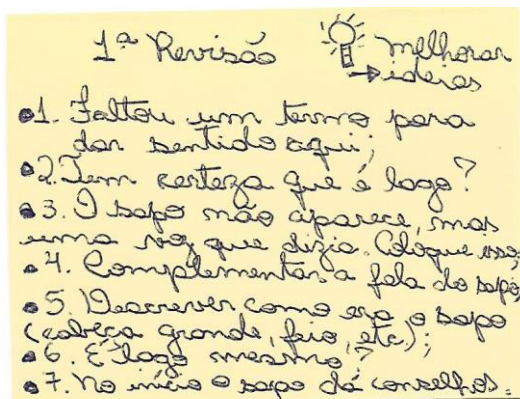 1ª Revisão melhorar
→ideias
•1. Faltou um termo para
dar sentido aqui;
•2. Tem certeza que é lago?
•3. O sapo não aparece, mas
uma voz que dizia. Coloque isso;
•4. Complementar a fala do sapo;
•5. Descrever como era o sapo
(cabeça grande, feio, etc);
•6. É lago mesmo?
•7. No início o sapo dá conselhos.